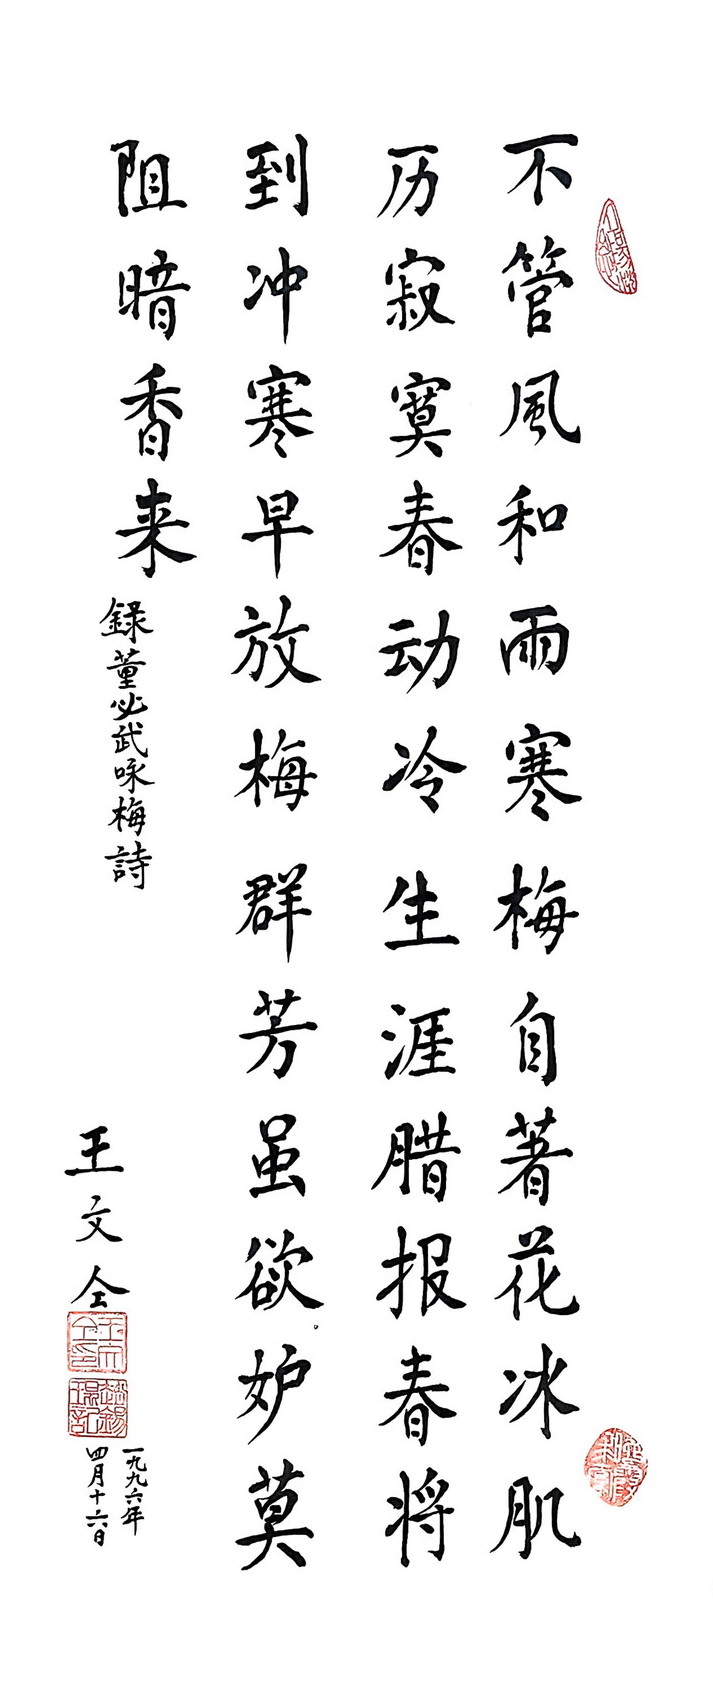 不管風和雨寒梅自著花冰肌
历寂寞春动冷生涯腊报春将
到冲寒早放梅群芳虽欲妒莫
阻暗香来
錄董必武咏梅詩
王文仝
王文仝印
一九九六年
四月十六日